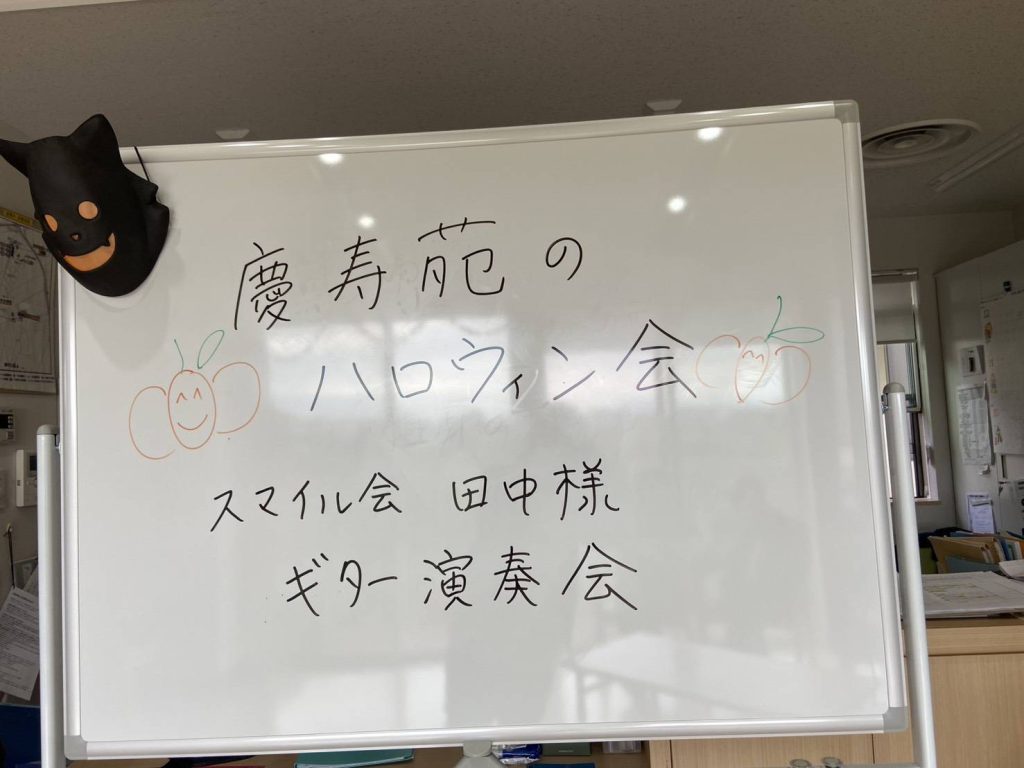 慶寿苑の
ハロウィン会
スマイル会 田中様
ギター演奏会